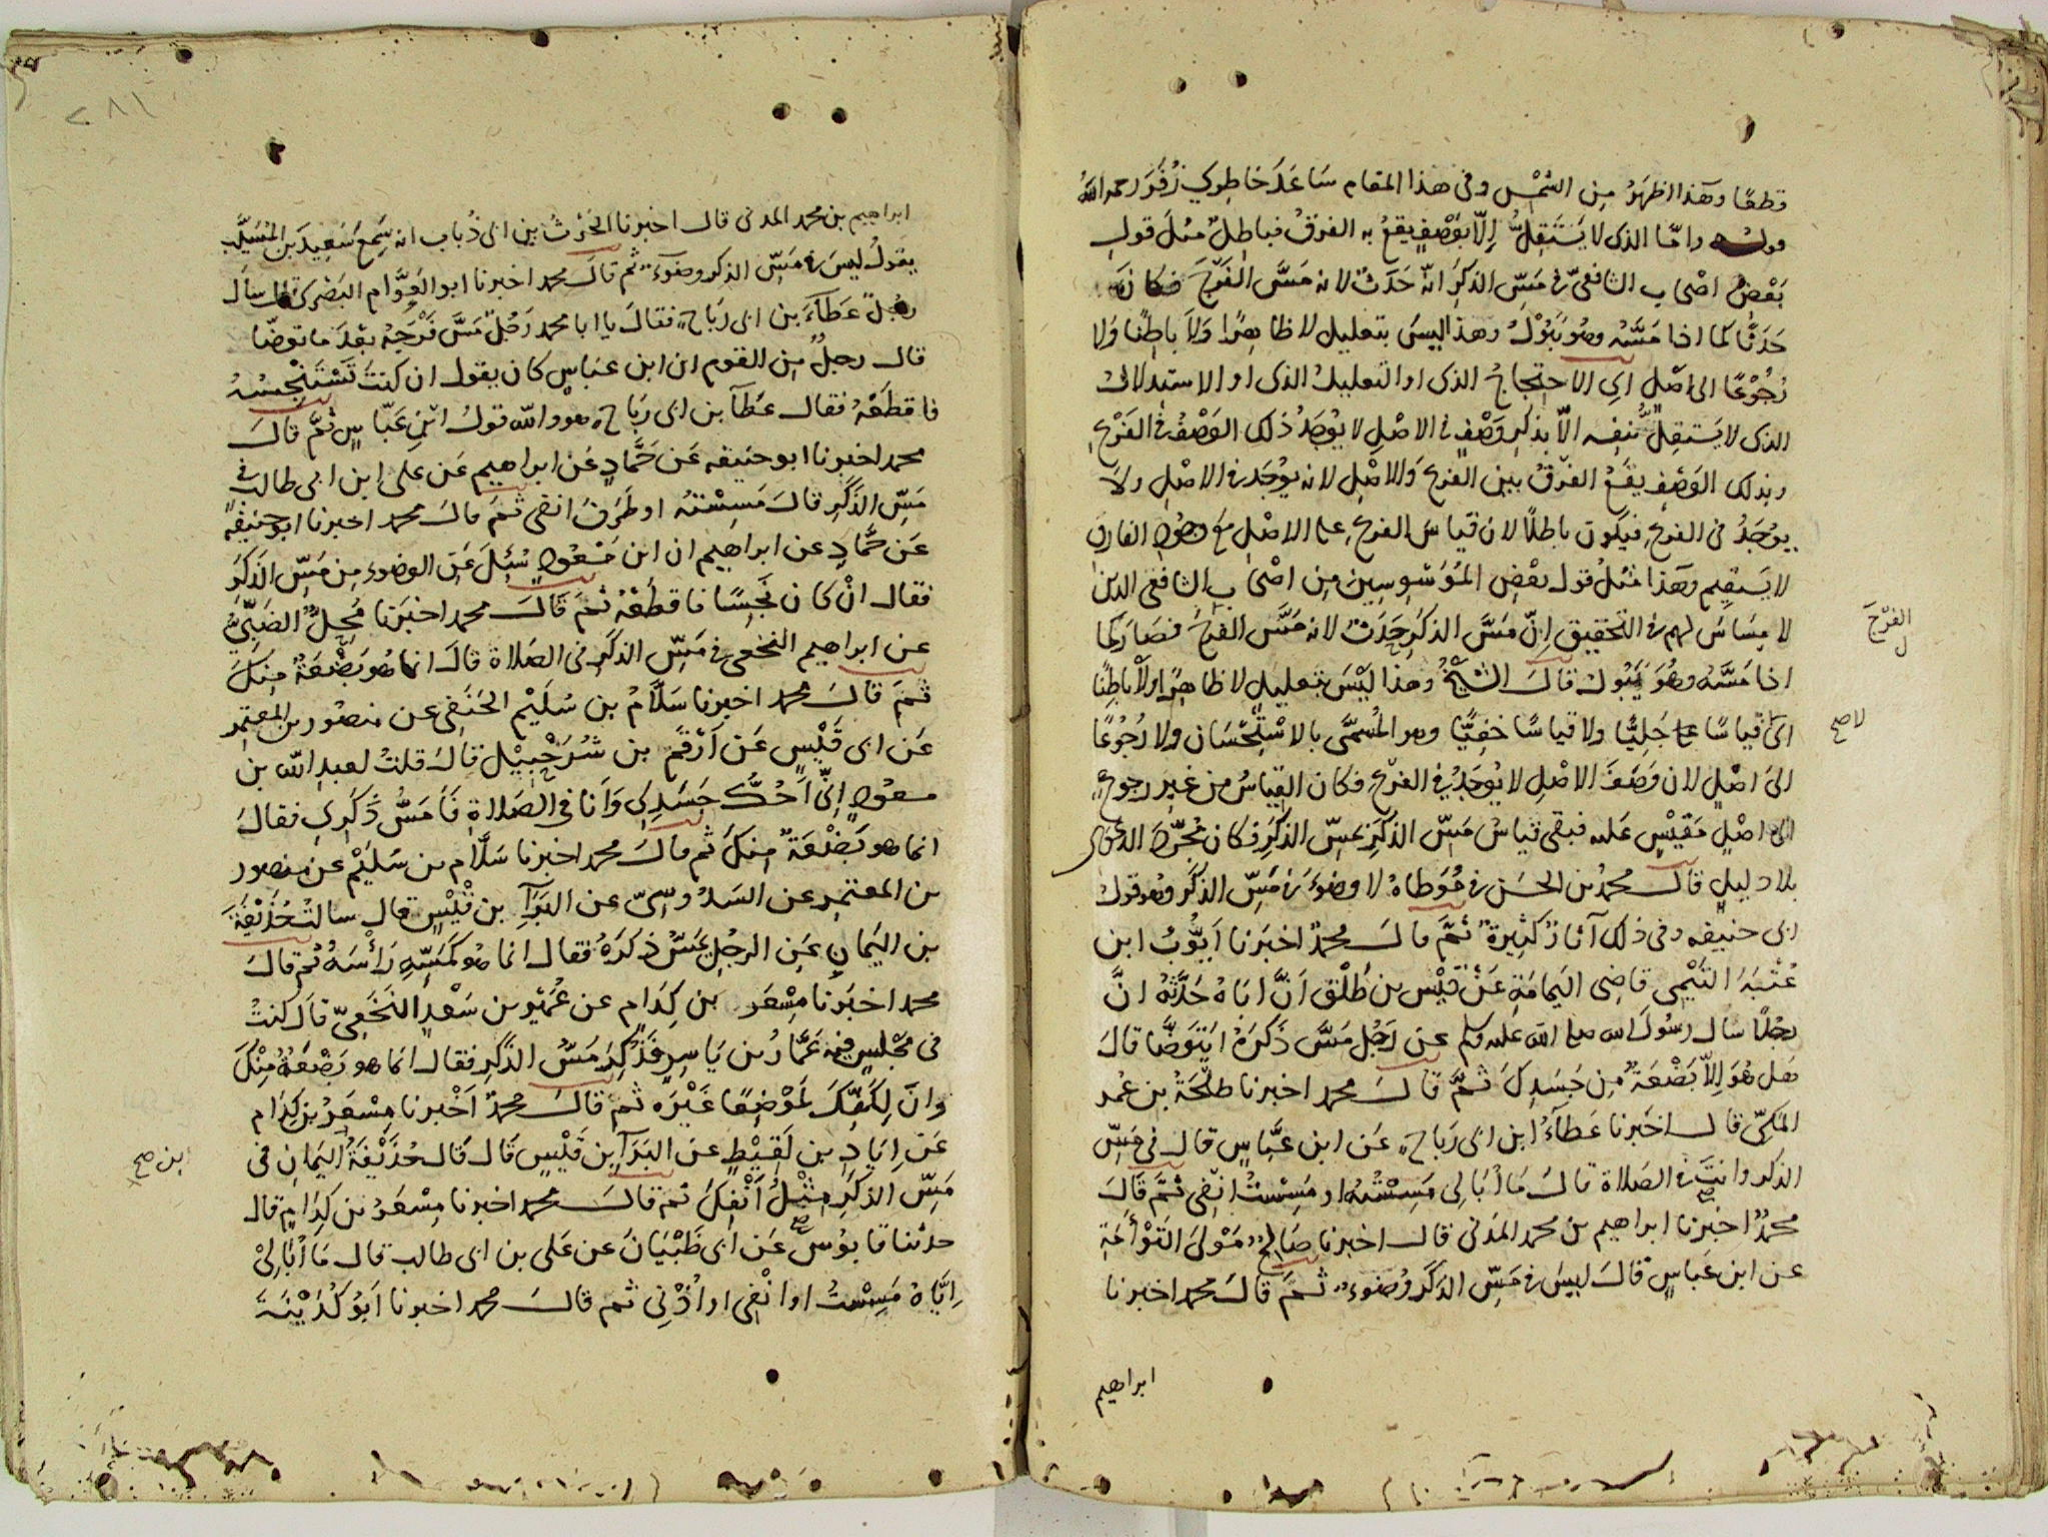 قطعًا وهذا اظهَرُ مِن الشَّمْسِ وفى هذا المقام سَاعَدَ خَاطِرِي زُفَرَ رحمه اللهُ
قولـه وامّا الذى لا يَسْتَقِلُّ إلّا بوَصْفٍ يقعُ به الفرقُ فباطِلٌ مثلَ قولِ
بَعْضُ اصْحاب الشافعىّ فى مَسِّ الذكَرِ انّهُ حَدَثٌ لانه مَسَّ الفَرْجَ فكان
حَدَثًا كما اذا مَسَّهُ وهُو يَبُوْلُ وهذا ليسَ بتعليلٍ لا ظاهِرًا وَلاَ بَاطِنًا ولا
رُجُوْعًا الى اصْلٍ اي الاحتِجاجُ الذى او التعليلُ الذى او الاستِدلالُ
الذى لا يَستقِلُّ بنفسِه الّا بذكرِ وَصْفٍ فى الاصْلِ لا يُوجَدُ ذلك الوَصْفُ فى الفَرْعِ
وبذلك الوَصْفِ يقعُ الفَرْقُ بين الفرعِ وَالاصْلِ لانه يُوجَد فى الاصْلِ ولاَ
يُوجَدُ فى الفرعِ فيكون باطلاً لان قياسَ الفرعِ على الاصْلِ مع وجودِ الفارقِ
لا يَستقِيم وهذا مثلُ قول بعْضِ المُوَسْوِسِين مِن اصْحابِ الشافعى الذين
لا مِسَاسَ لهم فى التحقيق اِنّ مَسَّ الذكرِ حَدَثٌ لانه مَسَّ الفَرْجَ فصَارَ كما
اذا مَسَّهُ وهُوَ يَبُوْلُ قالَ الشَّيْخُ وهذا لَيْسَ بتعليلٍ لا ظاهِرًا ولاَ بَاطِنًا
اى قياسًا جَلِيًّا ولا قياسًا خَفِيًّا وهو المُسمَّى بالاسْتِحْسَان ولا رُجُوْعًا
الىَ اصْلٍ لان وَصْفَ الاصْلِ لا يُوجَدُ فى الفَرْعِ فكان القِياسُ من غيرِ رجوعٍ
الى اصْلٍ مَقِيْسٍ عَليه فبقى قياسُ مَسِّ الذكرِ بمَسِّ الذكَرِ فكان مُجَرَّدَ الدعوَى
بلا دليلٍ قالَ محمدُ بن الحسَن فى مُوَطاهُ لا وضوءَ فى مَسِّ الذكَر وهُو قولُ
ابى حنيفه وفى ذلك آثارٌ كثِيرةٌ ثُمَّ قالَ محمدٌ اخبَرَنا اَيُّوْبُ ابن
عُتْبَةَ التَّيْمِى قاضِى اليَمامَةِ عَنْ قَيْسِ بن طَلْق اَنَّ اباهُ حَدَّثَهُ انَّ
رجُلاً سال رسُولَ الله صلى الله عليه وسلم عن رَجُلٍ مَسَّ ذكَرَهُ ايَتَوَضّا قالَ
هَل هُوَ اِلاّ بَضْعَةٌ مِن جَسَدِكَ ثمَّ قالَ محمد اخبرنا طلْحَةُ بن عُمر
المَكىّ قال اخبَرنا عَطآءُ ابن ابى رَباح عَن ابن عبَّاسٍ قال فى مَسِّ
الذكر وانتَ فى الصلاة قالَ مَا اُبَالِى مَسِسْتُهُ او مَسِسْتُ انفِى ثمَّ قالَ
محمدٌ اخبرنا ابراهيم بن محمد المَدنى قال اخبرنا صَالحٌ مَوْلَى التَوْأَمَة
عن ابن عَباسٍ قالَ ليسَ فى مَسِّ الذكَر وُضوءٌ ثمَّ قالَ محمد اخبرنا
ابراهيم
الفَرْجَ
لا صح
ابراهيم بن محمد المدنى قال اخبرنا الحٰرثُ بن ابى ذُباب انه سَمِعَ سَعِيدَ بن المُسَيَّب
يقولُ ليسَ فى مَسِّ الذكر وضوءٌ ثم قالَ محمد اخبرنا ابو العَوَّام البَصْرى قال سال
رجُلٌ عَطآءَ بن ابى رَباح فقالَ يا ابا محمد رَجُلٌ مَسَّ فَرْجَهُ بعْدَ ما توضّا
قال رجلٌ مِن القوم ان ابن عبَاسٍ كان يقول ان كنتَ تَسْتَنْجِسُهُ
فاقطَعْهُ فقال عَطآ بن ابى رَباح هو والله قولُ ابنِ عَبّاسٍ ثُمَّ قالَ
محمد اخبرنا ابو حنيفه عَن حَمَّادٍ عَن ابراهيم عَن على ابن ابى طالب فى
مَسِّ الذكَرِ قالَ مَسِسْتُهُ او طَرَفَ انفى ثمَّ قالَ محمد اخبرنا ابو حنيفه
عَن حَمَّادٍ عن ابراهيم ان ابن مَسْعُودٍ سُئِلَ عَن الوضوء مِن مَسِّ الذكَرِ
فقال انْ كان نَجِسًا فاقطَعْهُ ثمَّ قالَ محمد اخبَرنا مُحِلٌّ الضَبِّىُّ
عن ابراهيم النخعى فى مَسِّ الذكَرِ فى الصَلاة قالَ انما هُو بَضْعَةٌ مِنكَ
ثمَّ قالَ محمد اخبرنا سَلَّامُ بن سُلَيْم الحَنَفى عن منصُور بن المعتمِر
عَن ابى قَيْسٍ عَن اَرْقَمَ بن شُرَحْبِيْلَ قالَ قلتُ لعبدِ الله بن
مسعُودٍ اِنّى اَحُكُّ جَسَدِى وَاَنا فى الصَلاةِ فَاَمَسُّ ذَكَرِى فقالَ
انما هو بَضْعَةٌ مِنكَ ثم قالَ محمد اخبرنا سَلَّام بن سُلَيْم عن منصور
بن المعتمِر عن السَدُوسِىّ عن البَرَآءِ بن قَيْسٍ قال سالتُ حُذَيْفَةَ
بن اليَمانِ عَنِ الرجُلِ مَسَّ ذكَرَهُ فقال انما هُو كَمَسِّهِ رَأْسَهُ ثم قالَ
محمد اخبَرنا مِسْعَر بن كِدَام عن عُمَيْر بن سَعْدٍ النَخَعِىّ قالَ كنتُ
فى مَجْلِسٍ فيه عَمَّارُ بن يَاسِرٍ فَذُكِرَ مَسُّ الذَكرِ فقال انما هو بَضْعَةٌ مِنْكَ
وانَّ لِكَفِّكَ لَمَوْضِعًا غَيْرَه ثم قالَ محمدٌ اخْبرنا مِسْعَرُ بن كِدَام
عَن اِيَادِ بن لَقِيْطٍ عن البَرَآ بن قَيْسٍ قال قالَ حُذَيْفَةُ اليَمانِ فى
مَسِّ الذكَرِ مِثْلُ اَنْفِكَ ثم قالَ محمد اخبرنا مِسْعَرُ بن كِدَامٍ قال
حدثنا قابُوسُ عَن ابى ظَبْيَانَ عن عَلى بن ابى طالب قال مَا اُبَالِىْ
اِيّاهُ مَسِسْتُ او انْفِى او اُذُنِى ثم قالَ محمد اخبرنا اَبُو كُدَيْنَةَ
ابن صح
٢٨١